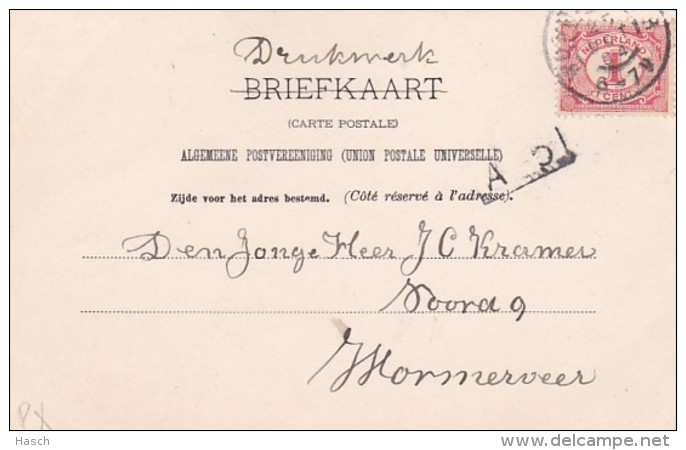 Drukwerk
BRIEFKAART
(CARTE POSTALE)
ALGEMEENE POSTVEREENIGING (UNION POSTALE UNIVERSELLE)
Zijde voor het adres bestemd. (Côté réservé à l'adresse).
NEDERLAND
1
CENT
6-7N
Den Jonge Heer J C Kramer
Noord 9
Wormerveer
PX
Hasch
www.delcampe.net